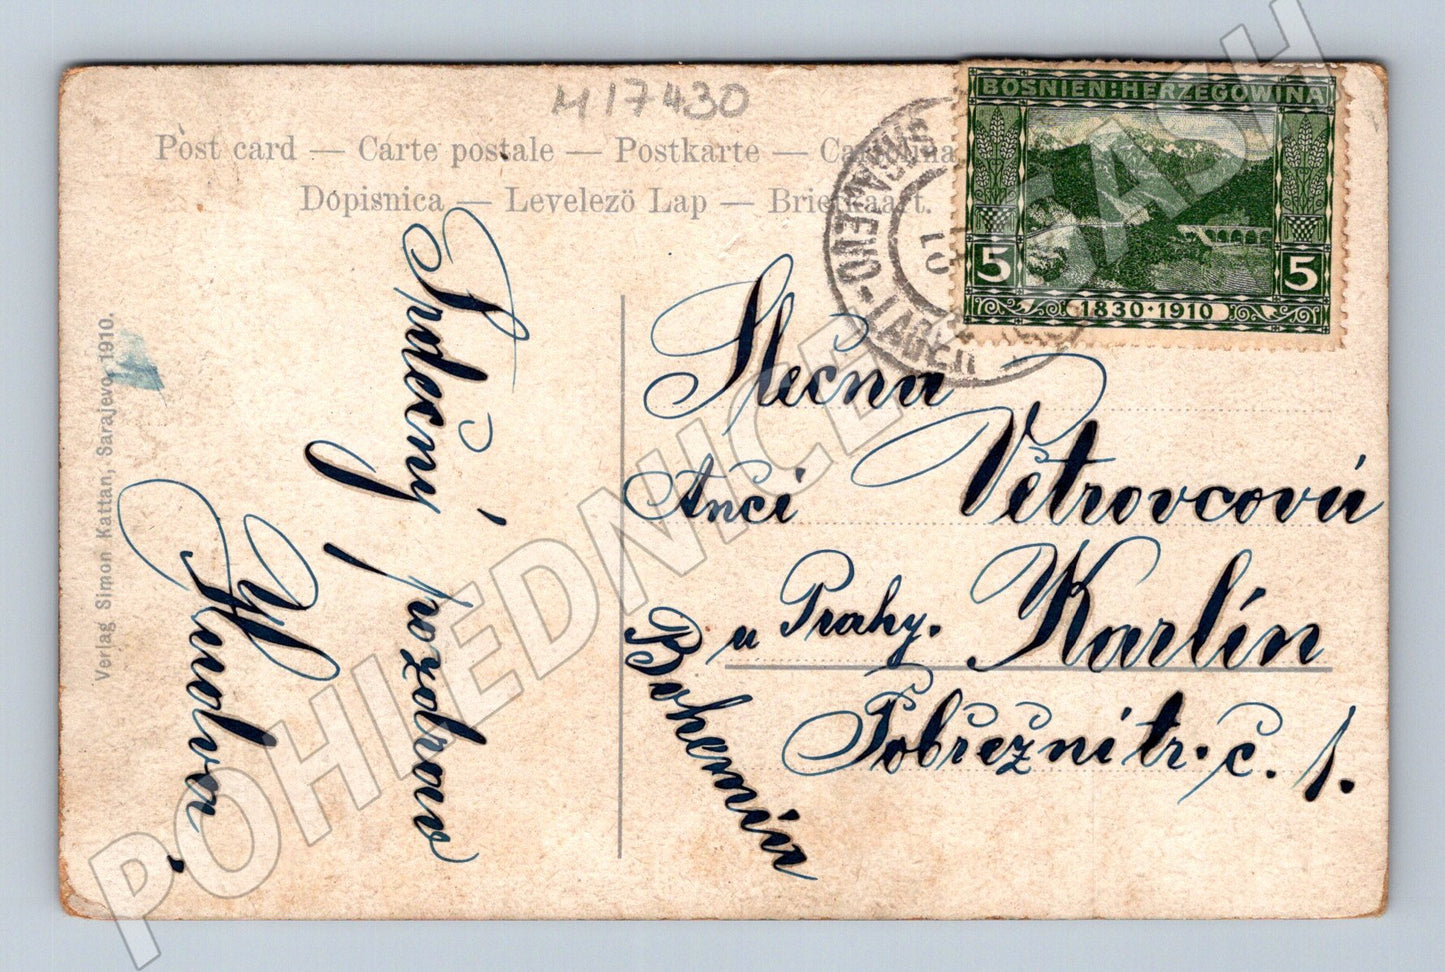 M 17430
Post card — Carte postale — Postkarte — Cartolina
Dopisnica — Levelező Lap — Briefkaart.
BOSNIEN·HERZEGOWINA
5 5
1830·1910
SARAJEVO - LAGER
Verlag Simon Kattan, Sarajevo, 1910.
Srdečný
pozdrav
Slečna
Anči Větrovcová
u Prahy. Karlín
Pobřežní tr. č. 1.
Bohemia
POHLEDNICE SASH